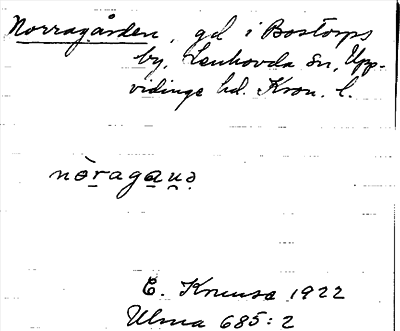 Norragården, gd i Bostorps
by, Lenhovda sn, Upp-
vidinge hd. Kron. l.
nòragaṵə
E. Kreusa 1922
Ulma 685:2